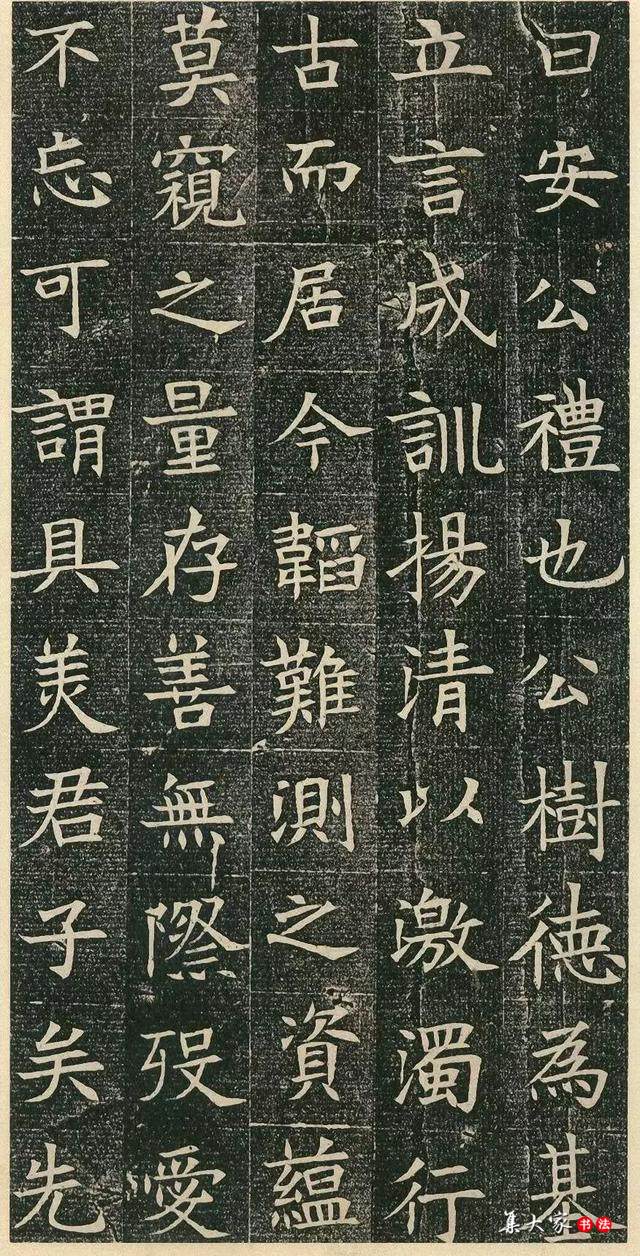 曰安公禮也公樹德為基
立言成訓揚清以激濁行
古而居今韜難測之資蘊
莫窺之量存善無際歿愛
不忘可謂具美君子矣先
集大家书法